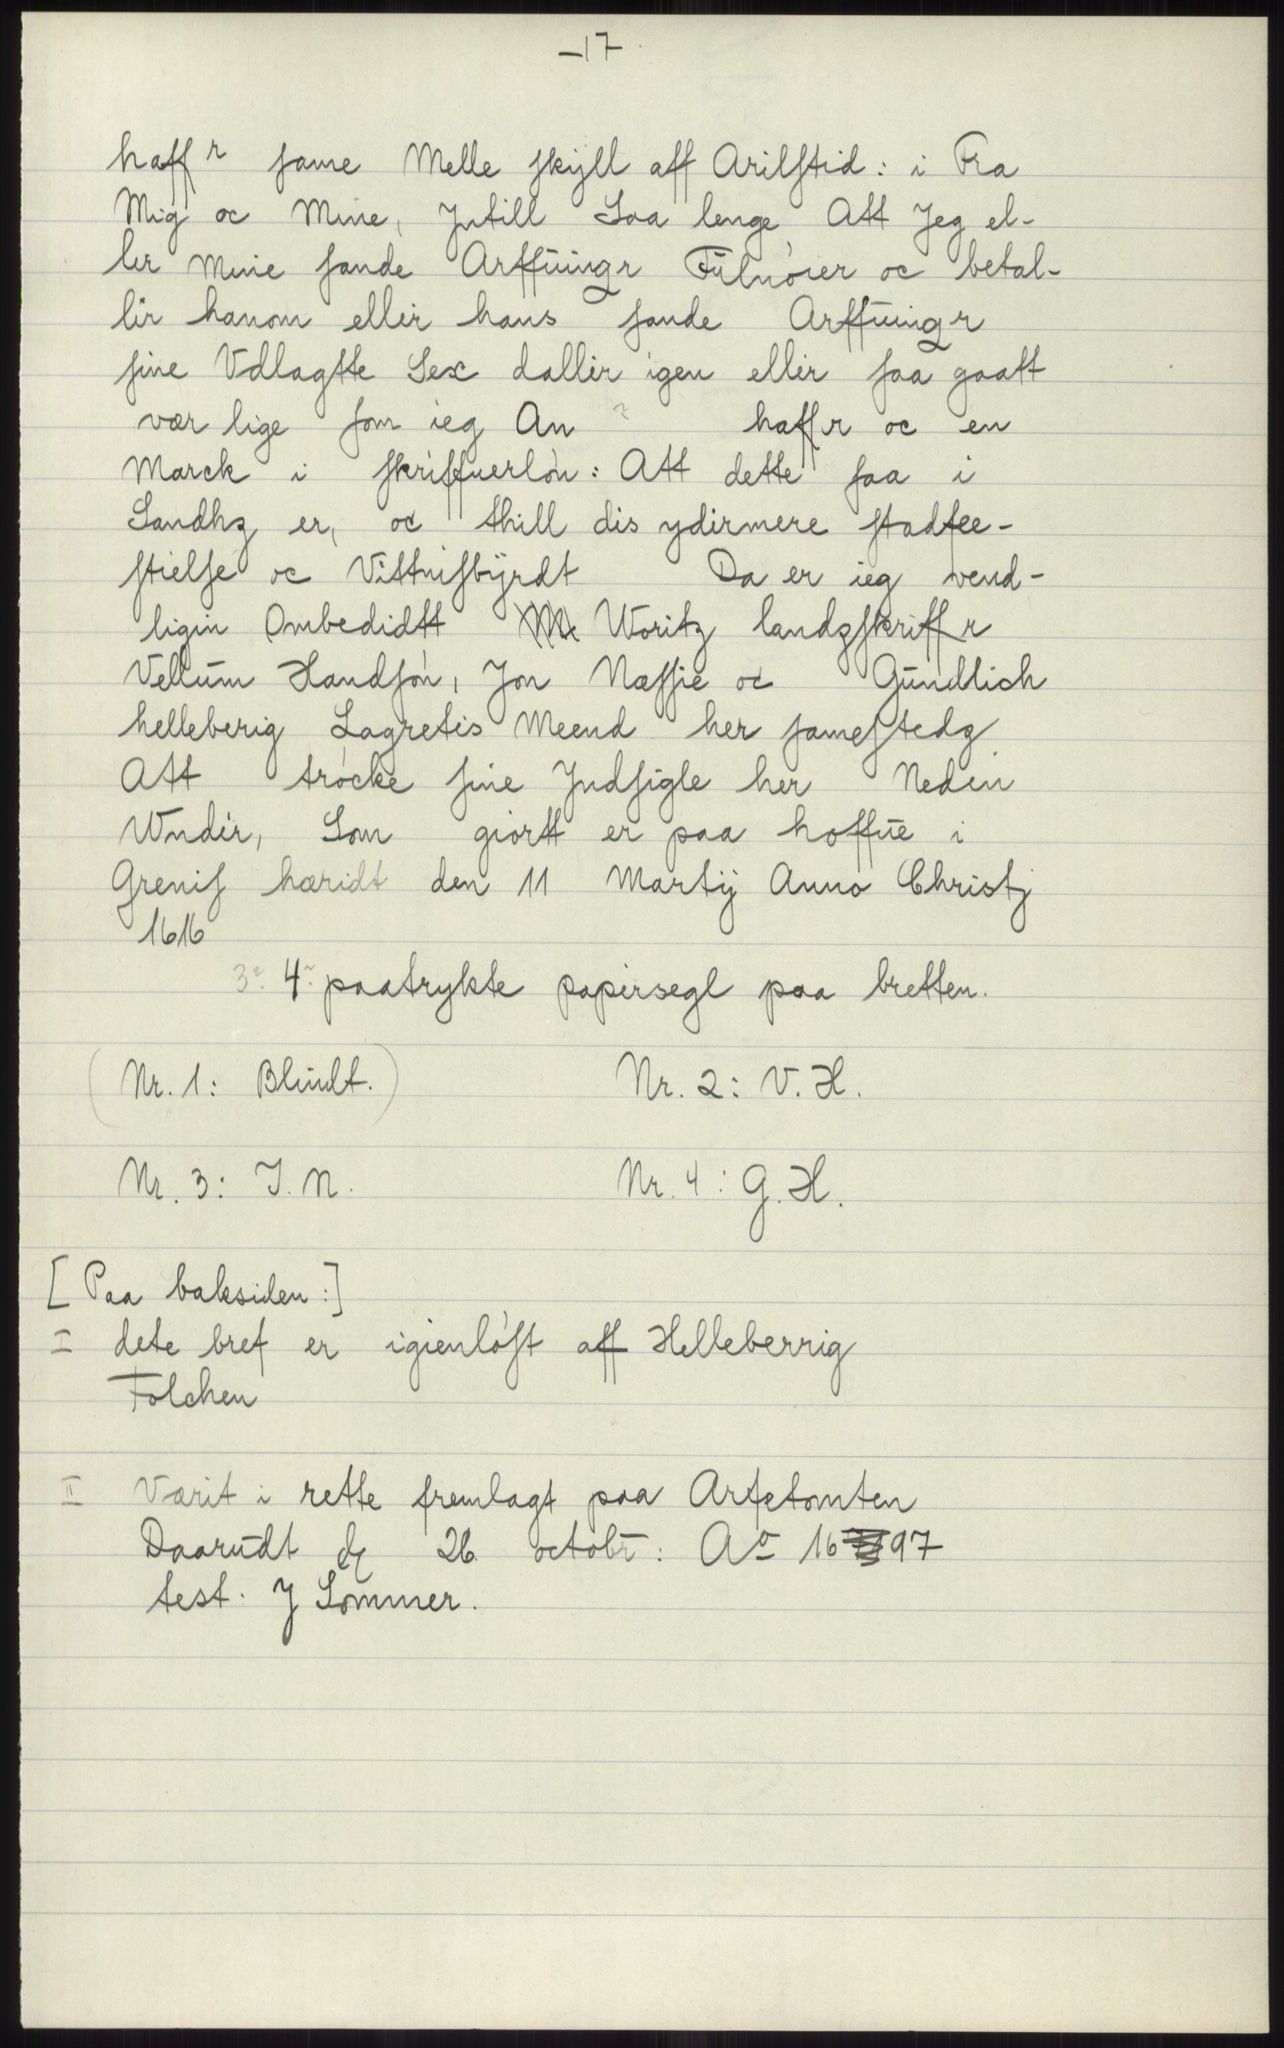 -17
haffr same Melle skyll aff Arilstid: i Fra
Mig oc Mine, Jntill Saa lenge Att Jeg el-
ler mine sande Arffuingr Fulnöier oc betal-
lir hanom ellir hans sande Arffuingr
sine Vdlagtte Sex dallir igen ellir saa gaatt
vær lige som ieg An haffr oc en
Marck i skriffuerlön: Att dette saa i
Sandhz er, oc thill dis ydirmere stadfee-
stielse oc Vittnisbÿrdt Da er ieg vend-
ligin Ombedidtt Woritz landzskriffr
Vellum Handsön, Jon Næssie oc Gundlich
helleberig Lagretis Meend her samestedz
Att tröcke sine Jndsigle her Nedin
Wndir, Som giortt er paa hoffue i
Grenis hæridt den 11 Martij Anno Christj
1616
3 4 paatrykte papirsegl paa bretten.
(Nr. 1: Blindt.) Nr. 2: V. H.
Nr. 3: J. N. Nr. 4: G. H.
[Paa baksiden:]
I dete bref er igienlöst aff Helleberrig
Folchen
II Værit i rette fremlagt paa Arfetomten
Daarudt d 26 octobr: Ao 1697
test. J Sommer.